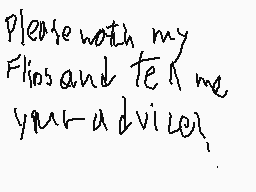 Please watch my
Flips and tell me
your advice!